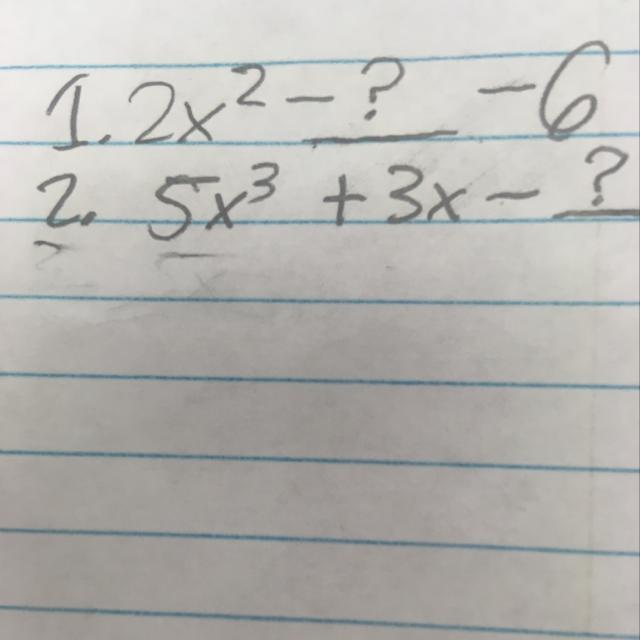 1. 2x² - ? - 6
2. 5x³ + 3x - ?